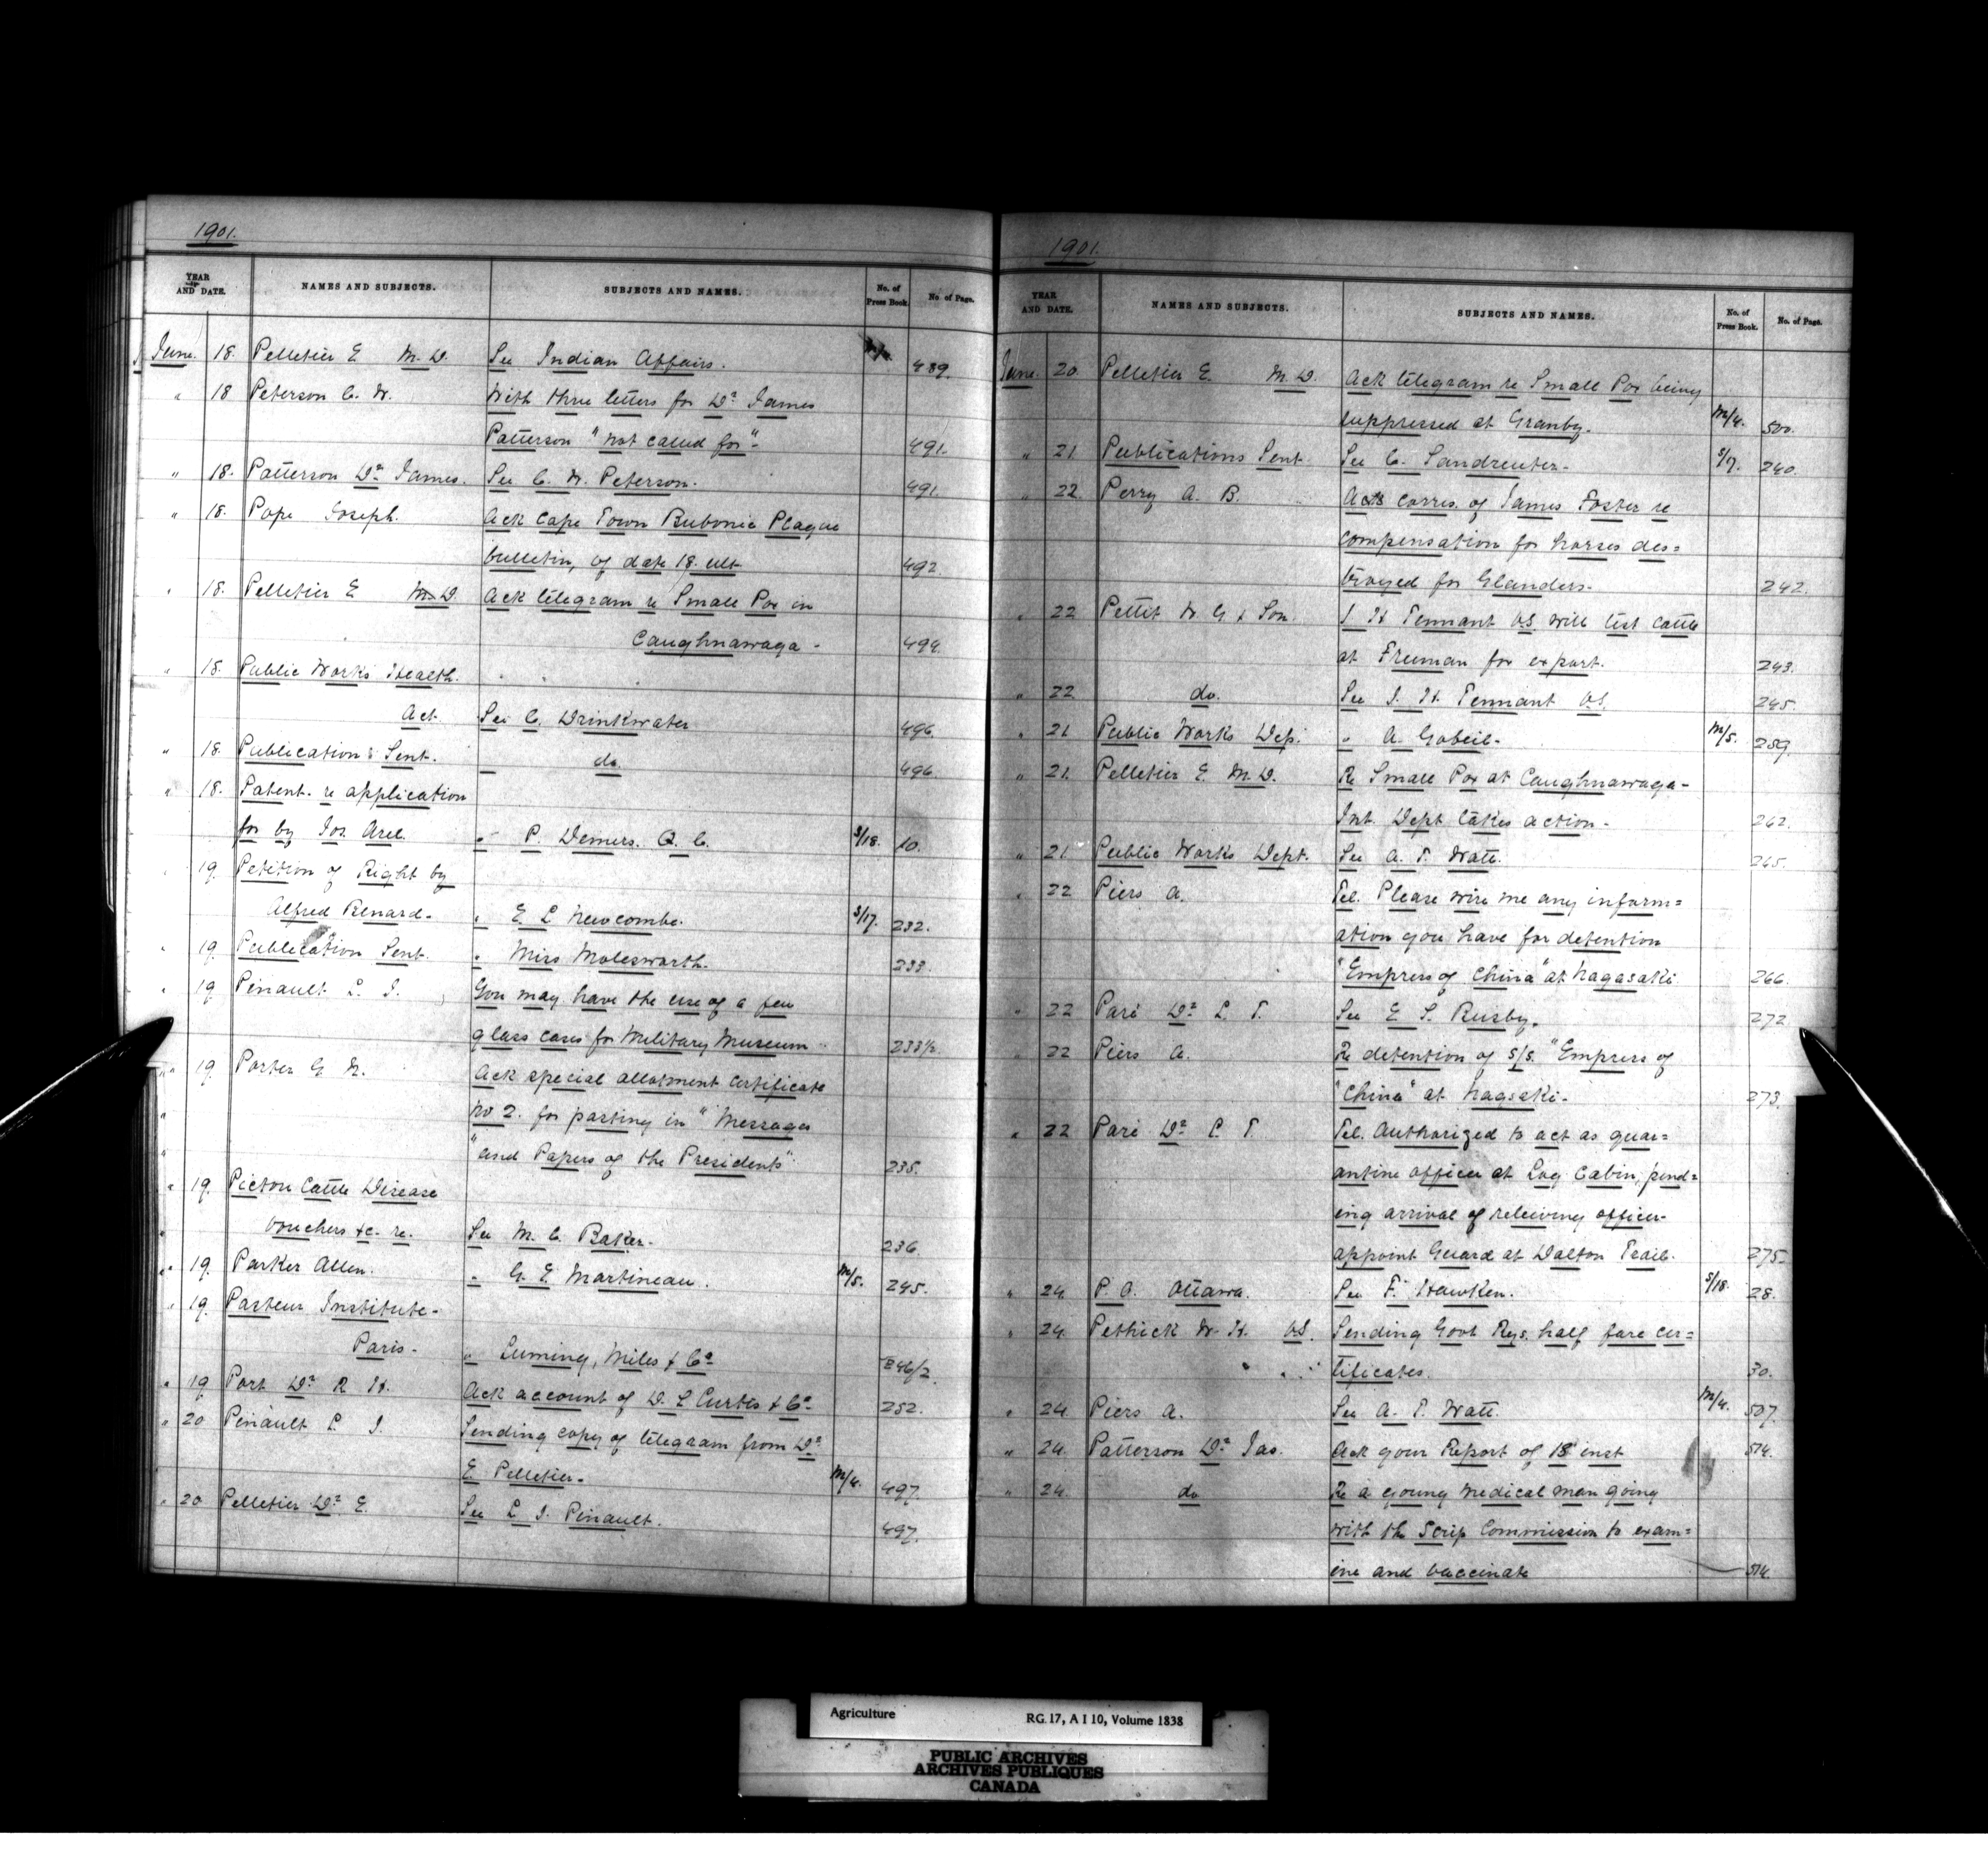 1901.
YEAR AND DATE. NAMES AND SUBJECTS. SUBJECTS AND NAMES. No. of Press Book. No. of Page.
June. 18. Pelletier E M.D. See Indian Affairs. 489.
" 18 Peterson C. W. With three letters for Dr James
Patterson "not called for"- 491.
" 18. Patterson Dr James. See C. W. Peterson. 491.
" 18. Pope Joseph. Ack Cape Town Bubonic Plague
bulletin, of date 18. ult 492.
" 18. Pelletier E M.D Ack telegram re Small Pox in
Caughnawaga - 494.
" 18. Public Works Health.
Act. See C. Drinkwater 496.
" 18. Publications Sent. " do. 496.
" 18. Patent. re application
for by Jos. Arel. " P. Demers. Q. C. S/18. 10.
" 19. Petition of Right by
Alfred Benard. " E. L Newcombe. S/17. 232.
" 19. Publication Sent. " Miss Molesworth. 233.
" 19. Pinault L. J. You may have the use of a few
glass cases for Military Museum 233½
" 19. Porter G. W. Ack special allotment certificate
No 2. for pasting in "Messages
"and Papers of the Presidents" 235.
" 19. Picton Cattle Disease
Vouchers &c. re. See M. C. Baker. 236
" 19. Parker Allen. " G. E. Martineau. M/5. 245.
" 19. Pasteur Institute-
Paris- " Leeming, Miles & Co 246/2
" 19 Port Dr R H. Ack account of D. L Curtis & Co 252.
" 20 Pinault L J. Sending copy of telegram from Dr
E Pelletier- M/4. 497.
" 20 Pelletier Dr E. See L J. Pinault. 497.
1901.
YEAR AND DATE. NAMES AND SUBJECTS. SUBJECTS AND NAMES. No. of Press Book. No. of Page.
June 20. Pelletier E. M.D. Ack telegram re Small Pox being
suppressed at Granby. M/4. 500.
" 21 Publications Sent. See C. Landreuter. S/7. 240.
" 22. Perry A. B. Acks corres. of James Foster re
compensation for horses des=
troyed for Glanders. 242.
" 22 Pettit W G & Son. J H Tennant V.S. will test cattle
at Freeman for export. 243.
" 22 do. See J. H. Tennant V.S. 245.
" 21 Public Works Dep. " A. Gobeil- M/5. 259.
" 21. Pelletier E. M.D. Re Small Pox at Caughnawaga-
Int. Dept takes action. 262.
" 21 Public Works Dept. See A. T. Watt. 265.
" 22 Piers A. Tel. Please wire me any inform=
ation you have for detention
"Empress of China" at Nagasaki 266.
" 22 Paré Dr L T. See E S. Busby. 272
" 22 Piers A. Re detention of S/S. "Empress of
"China" at Nagsaki- 273.
" 22 Paré Dr L. T. Tel. Authorized to act as quar=
antine officer at Log Cabin, pend=
ing arrival of relieving officer-
appoint Guard at Dalton Trail. 275.
" 24. P. O. Ottawa. See F. Hawken. S/18. 28.
" 24. Pethick W. H. VS. Sending Govt Rys. half fare cer=
tificates. 30.
" 24. Piers A. See A. T. Watt. M/4. 507.
" 24. Patterson Dr Jas. Ack your Report of 18 inst 514.
" 24. do Re a young medical man going
with the Scrip Commission to exam=
ine and vaccinate 514.
Agriculture RG 17, A I 10, Volume 1838
PUBLIC ARCHIVES
ARCHIVES PUBLIQUES
CANADA